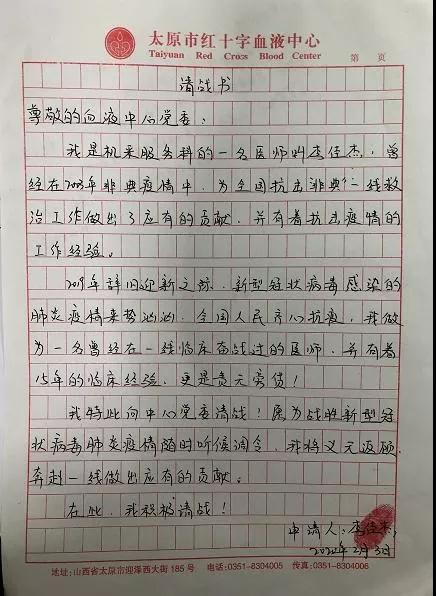 太原市红十字血液中心
Taiyuan Red Cross Blood Center
第 页
请战书
尊敬的血液中心党委：
我是机采服务科的一名医师叫李佳杰，曾
经在2003年非典疫情中，为全国抗击非典一线救
治工作做出了应有的贡献，并有着抗击疫情的
工作经验。
2019年辞旧迎新之际，新型冠状病毒感染的
肺炎疫情来势汹汹，全国人民齐心抗疫，我做
为一名曾经在一线临床奋战过的医师，并有着
15年的临床经验，更是责无旁贷！
我特此向中心党委请战！愿为战胜新型冠
状病毒肺炎疫情随时听候调令，我将义无返顾，
奔赴一线做出应有的贡献。
在此，我积极请战！
申请人：李佳杰
2020年2月3日
地址：山西省太原市迎泽西大街185号 电话：0351-8304005 传真：0351-8304006